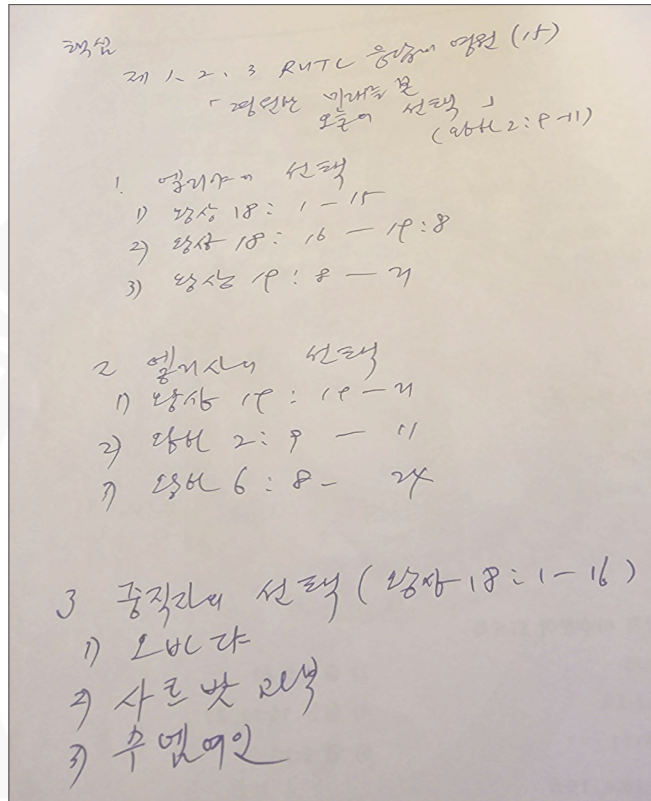 핵심
제 1, 2, 3 RUTC 응답의 영원 (15)
「평원반 미래를 본
오늘의 선택」
(왕하 2:9-11)
1. 엘리야의 선택
1) 왕상 18: 1-15
2) 왕상 18: 16 - 19:8
3) 왕상 19: 8 - 21
2 엘리사의 선택
1) 왕상 19: 19-21
2) 왕하 2: 9 - 11
3) 왕하 6: 8 - 24
3 중직자의 선택 (왕상 18: 1-16)
1) 오바댜
2) 사르밧 과부
3) 수넴여인